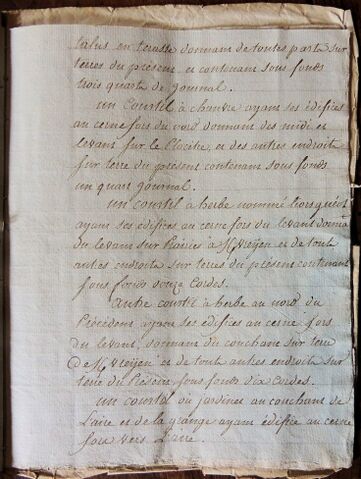 talus en terasse donnant de toutes parts sur
terres du présent et contenant sous fonds
trois quarts de journal.
un Courtil à chanvre ayant ses édifices
au cerne fors du nord donnant des midi et
levant sur le et des autres endroits
sur terre du présent contenant sous fonds
un quart journal.
un courtil à herbe nommé
ayant ses édifices au cerne fors du levant donnant
du levant sur à et de tout
autres endroits sur terres du présent contenant
sous fonds douze Cordes.
Autre courtil à herbe au nord du
Précédent ayant ses édifices au cerne fors
du levant, donnant du couchant sur terre
de et de tout autres endroits sur
terre du Présent sous fonds dix Cordes.
un courtil ou jardinet au couchant de
L'aire et de la grange ayant édifice au cerne
fors vers L'aire.